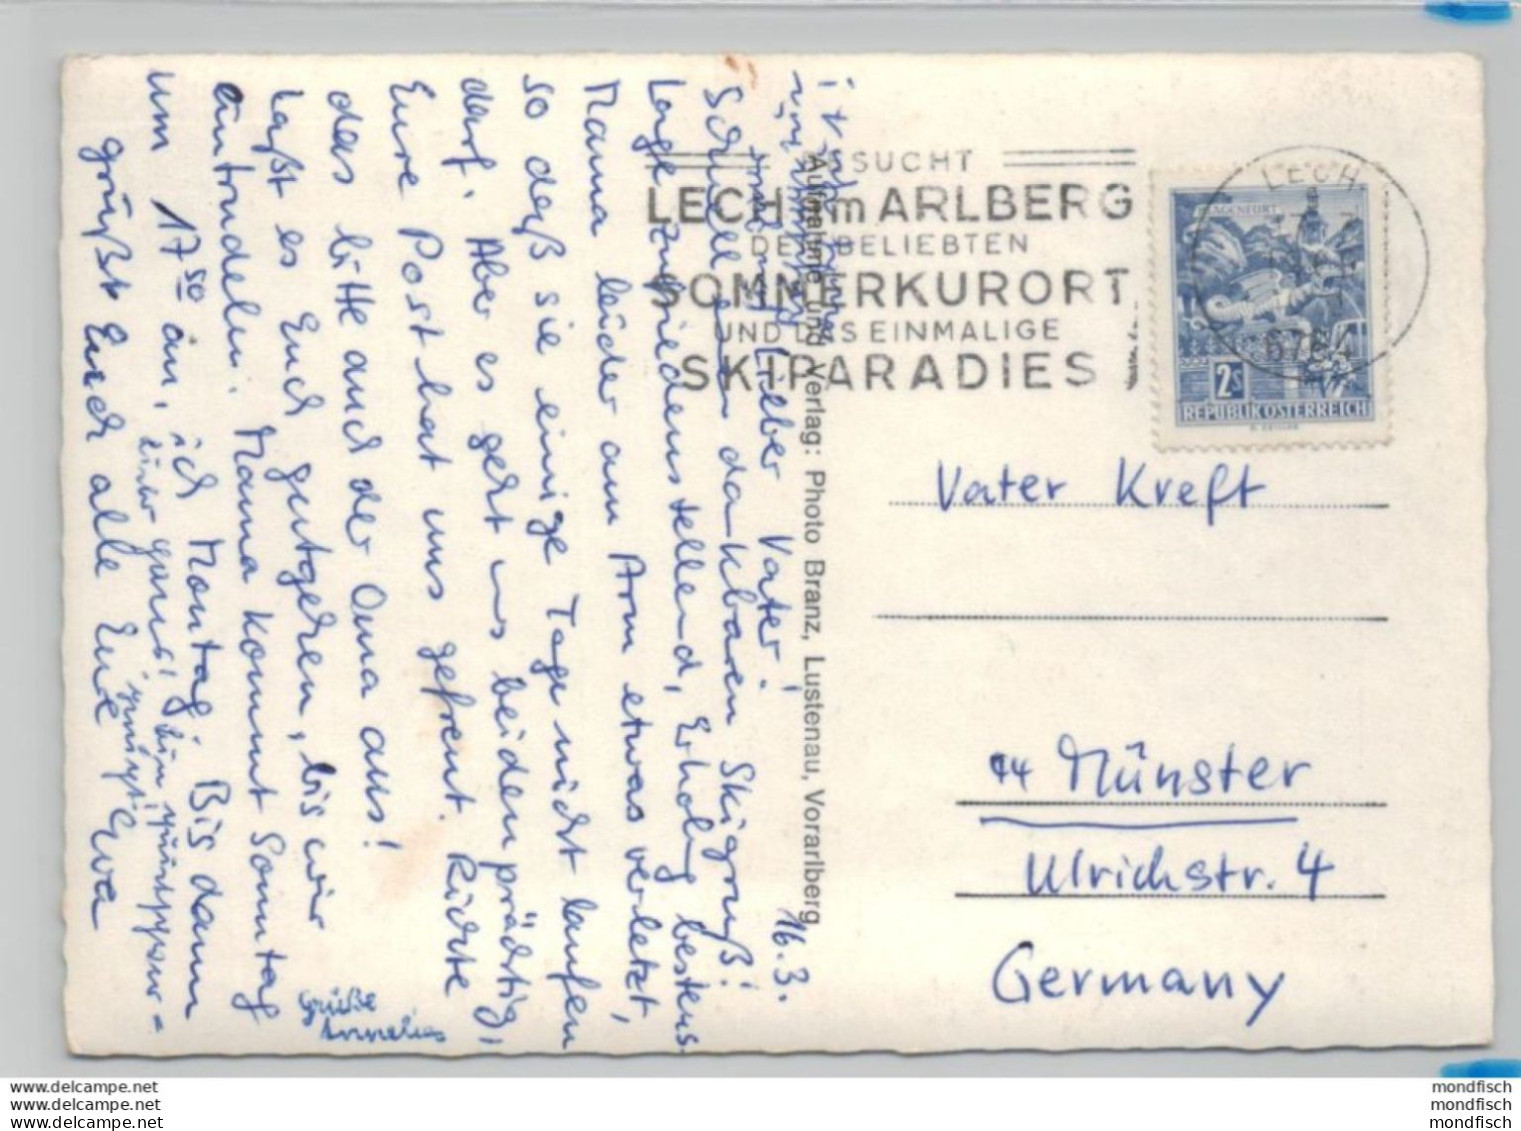 16.3.
Lieber Vater!
Schnellen dankbaren Skigruß!
Lage zufriedenstellend, Erholg bestens.
Mama leider am Arm etwas verletzt,
so daß sie einige Tage nicht laufen
darf. Aber es geht uns beiden prächtig,
Eure Post hat uns gefreut. Richte
das bitte auch der Oma aus!
Laßt es Euch gutgehen, bis wir
antrudeln. Mama kommt Sonntag
um 17 50 an, ich Montag. Bis dann
grüßt Euch alle Eure Eva
Grüße
Annelies
Aufnahme und Verlag: Photo Branz, Lustenau, Vorarlberg
BESUCHT
LECH am ARLBERG
DEN BELIEBTEN
SOMMERKURORT
UND DAS EINMALIGE
SKIPARADIES
LECH
6764
KLAGENFURT
2s
REPUBLIK ÖSTERREICH
Vater Kreft
44 Münster
Ulrichstr. 4
Germany
www.delcampe.net
www.delcampe.net
www.delcampe.net
mondfisch
mondfisch
mondfisch